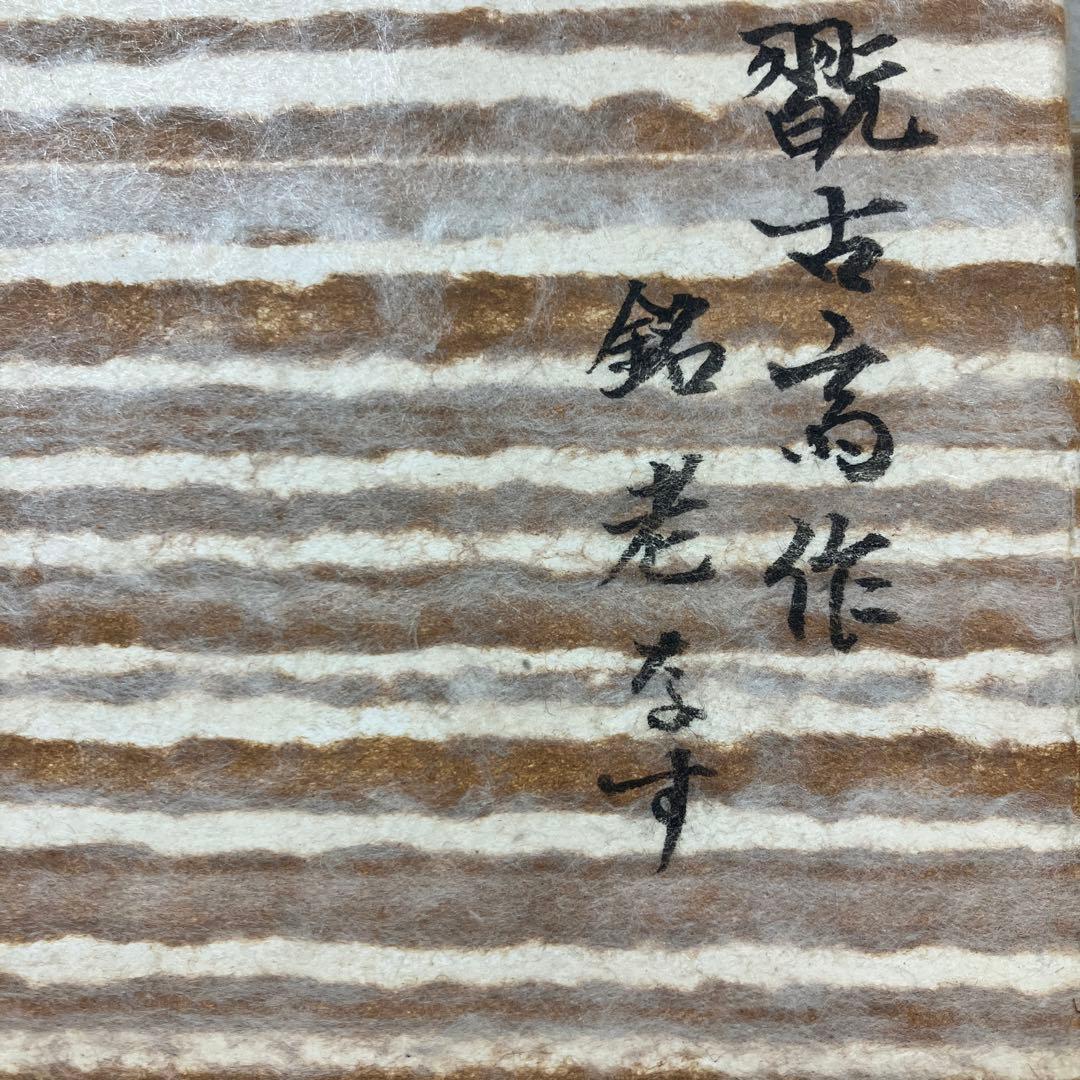 翫古斎作
銘 老なす